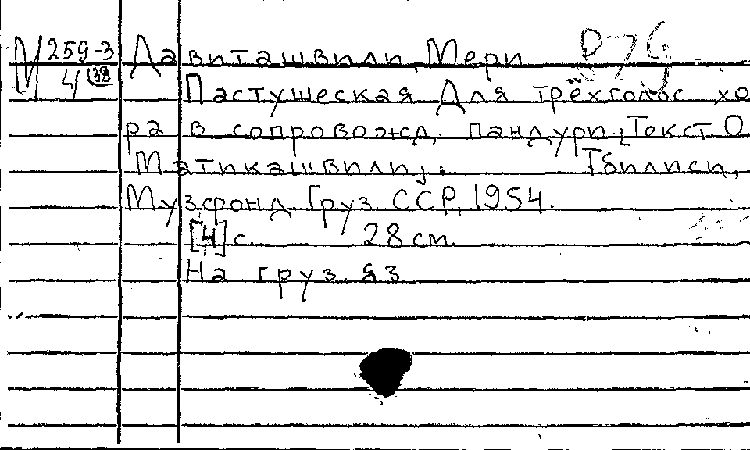 М 259-3 Давиташвили, Мери
4 Пастушеская Для трёхголос. хо
ра в сопровожд. пандури, [Текст О.
Матикашвили]. Тбилиси,
Музфонд Груз. ССР, 1954.
[4] с. 28 cm.
На груз. яз.